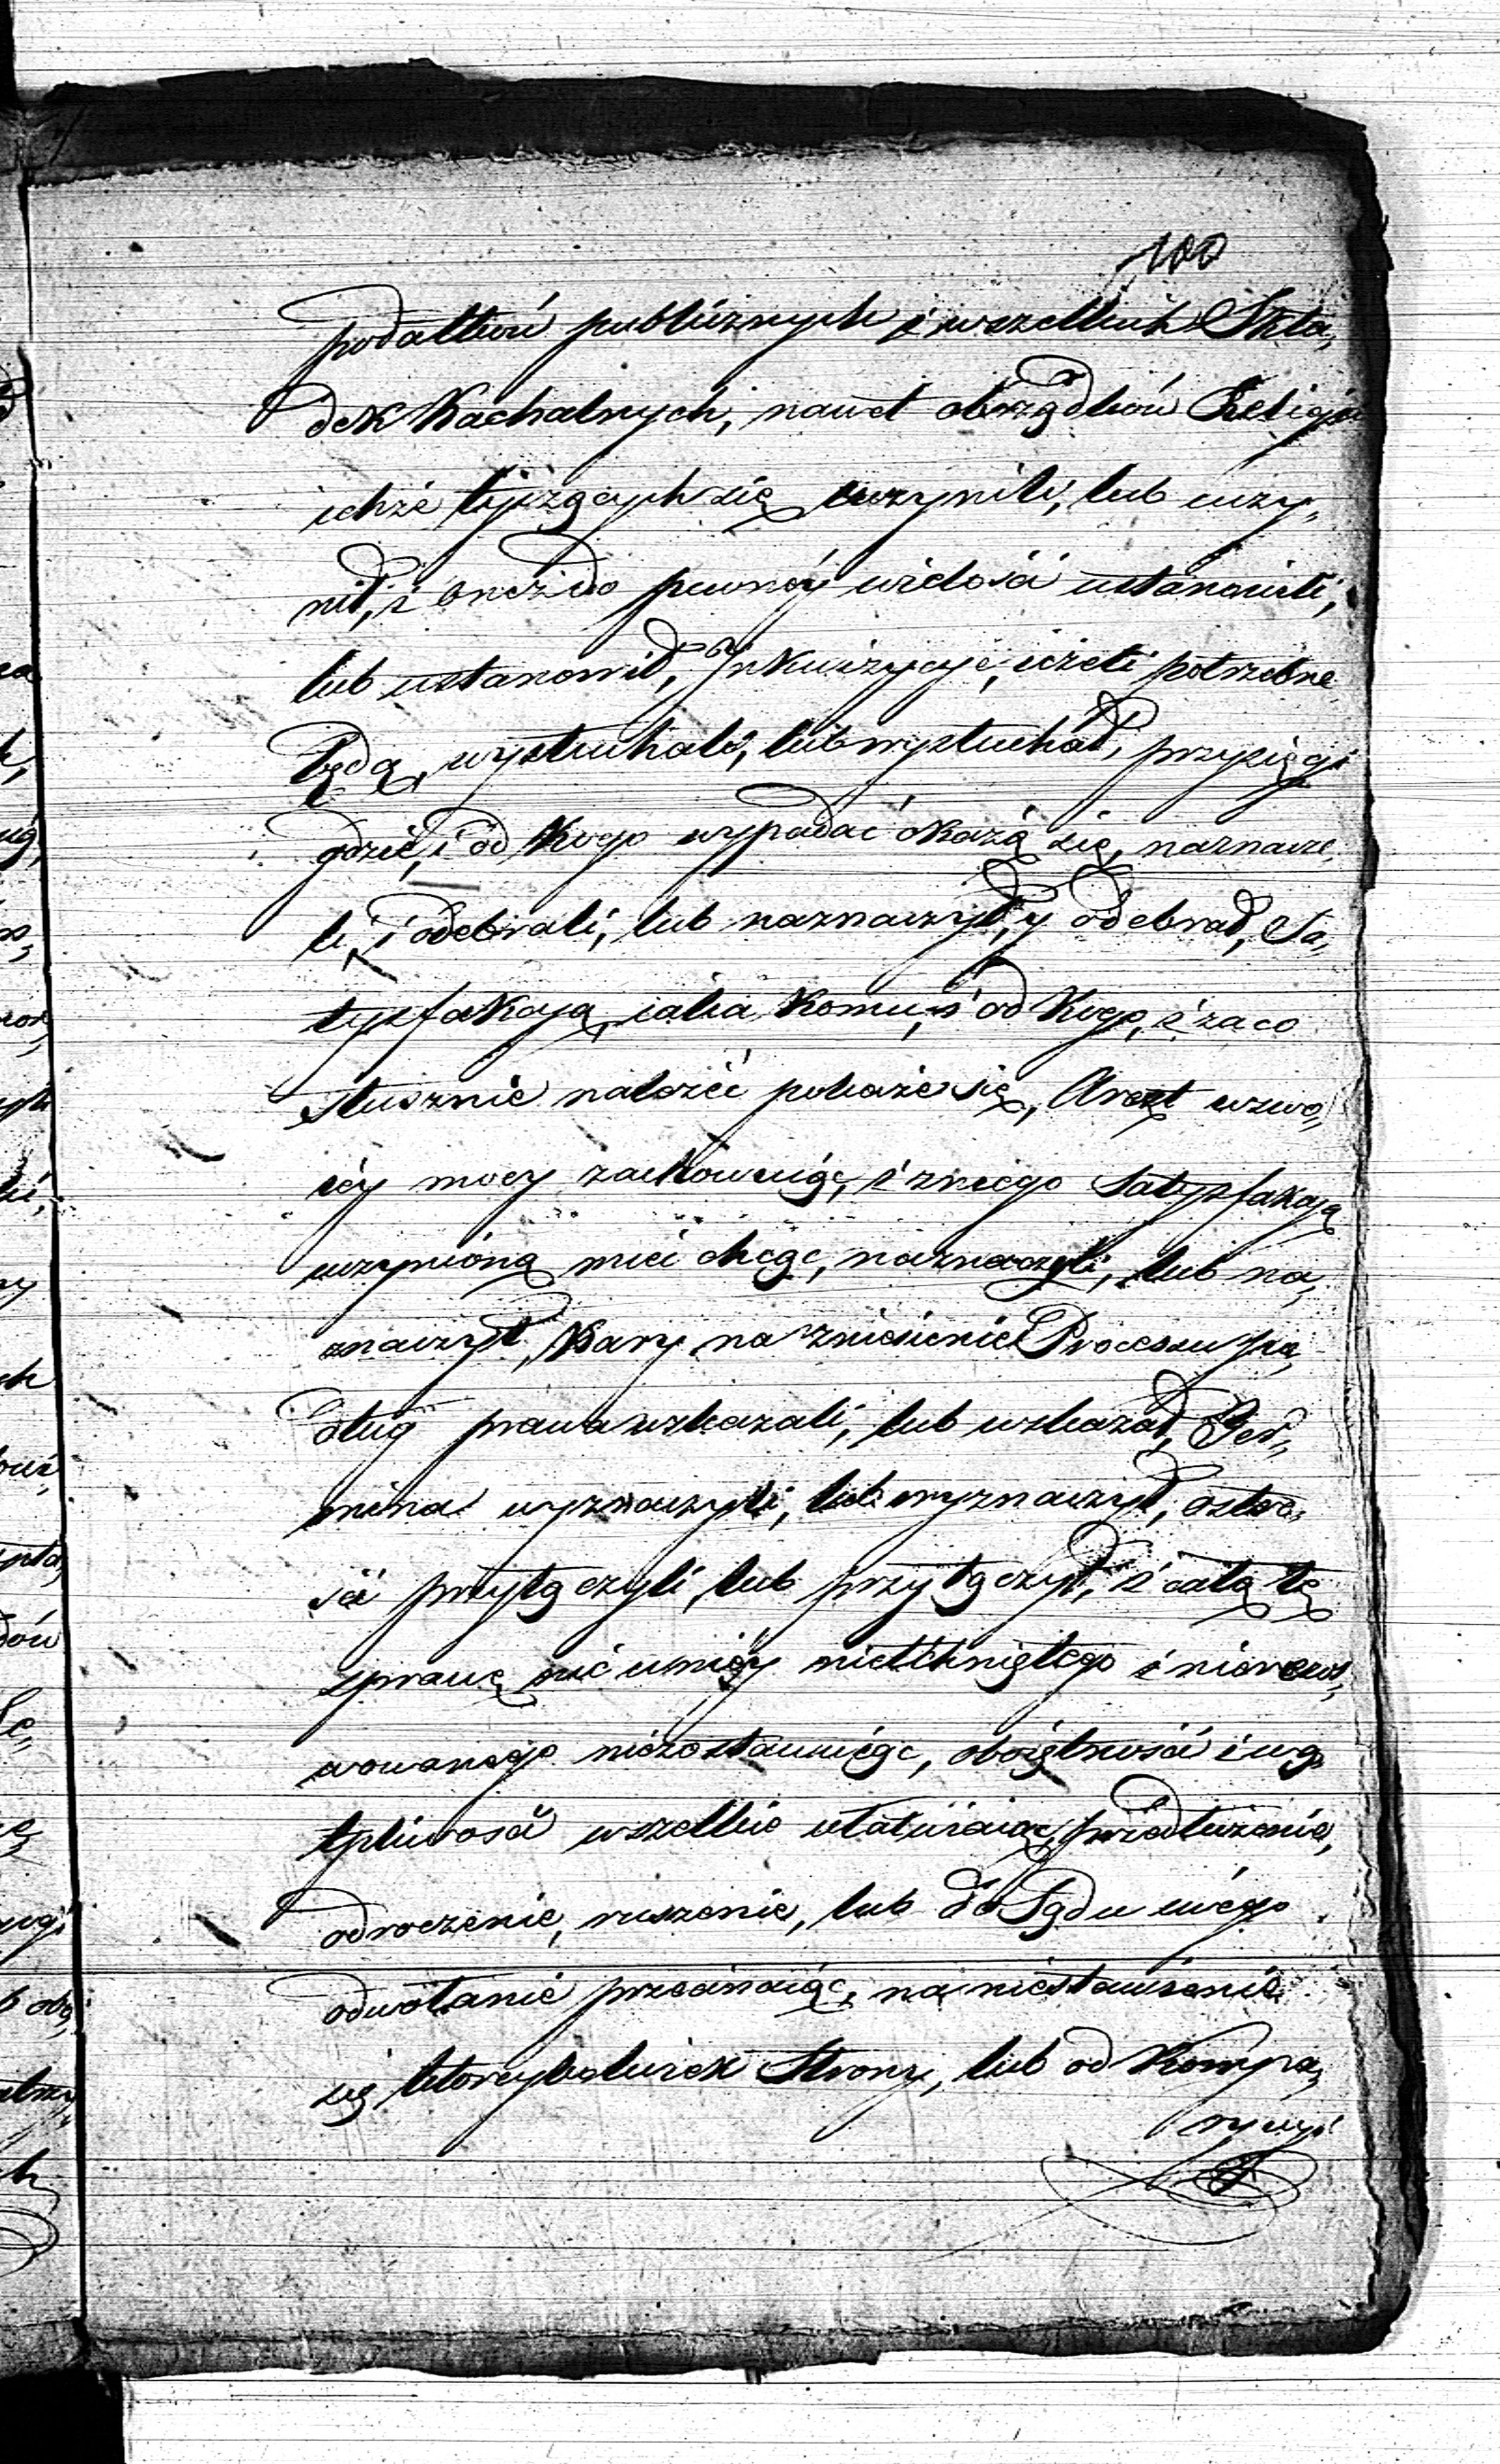 100
podatkow publicznych i wszelkich Skła„
dek Kachalnych, nawet obrządków Religii
ichże tyiących się uczynili, lub uczy„
nił, i oneż do pewnéy wielości ustanowili,
lub ustanowił, Jnkwizycye, ieżeli potrzebne
będą, wysłuchali, lub wysłuchał, przysięgi
gdzie, i od Kogo wypadać okażą się, naznacze„
li, i odebrali, lub naznaczył, y odebrał, Sa„
tysfakcyą, iaka Komu, i od Kogo, i za co
słusznie należeć pokaże się, Areszt w swo„
iéy mocy zachowuiąc, i z niego Satysfakcyą
uczynioną mieć chcąc, naznaczyli, lub na„
znaczył, Kary na zniesienie Processu po„
dług prawa wskazali, lub wskazał, Ter„
mina wyznaczyli, lub wyznaczył, ostro„
ści przyłączyli, lub przyłączył, i całą tę
sprawę nic w niéy nietkniętego i nierows„
wowanego niezostawuiąc, oboiętność i wą„
tpliwość wszelkie ułatwiaiąc, przedłużenie,
odroczenie, ruszenie, lub do Sądu inégo
odwołanie przecinaiąc, na niestawienie
się ktoreykolwiek Strony, lub od Kompa„
rycyi